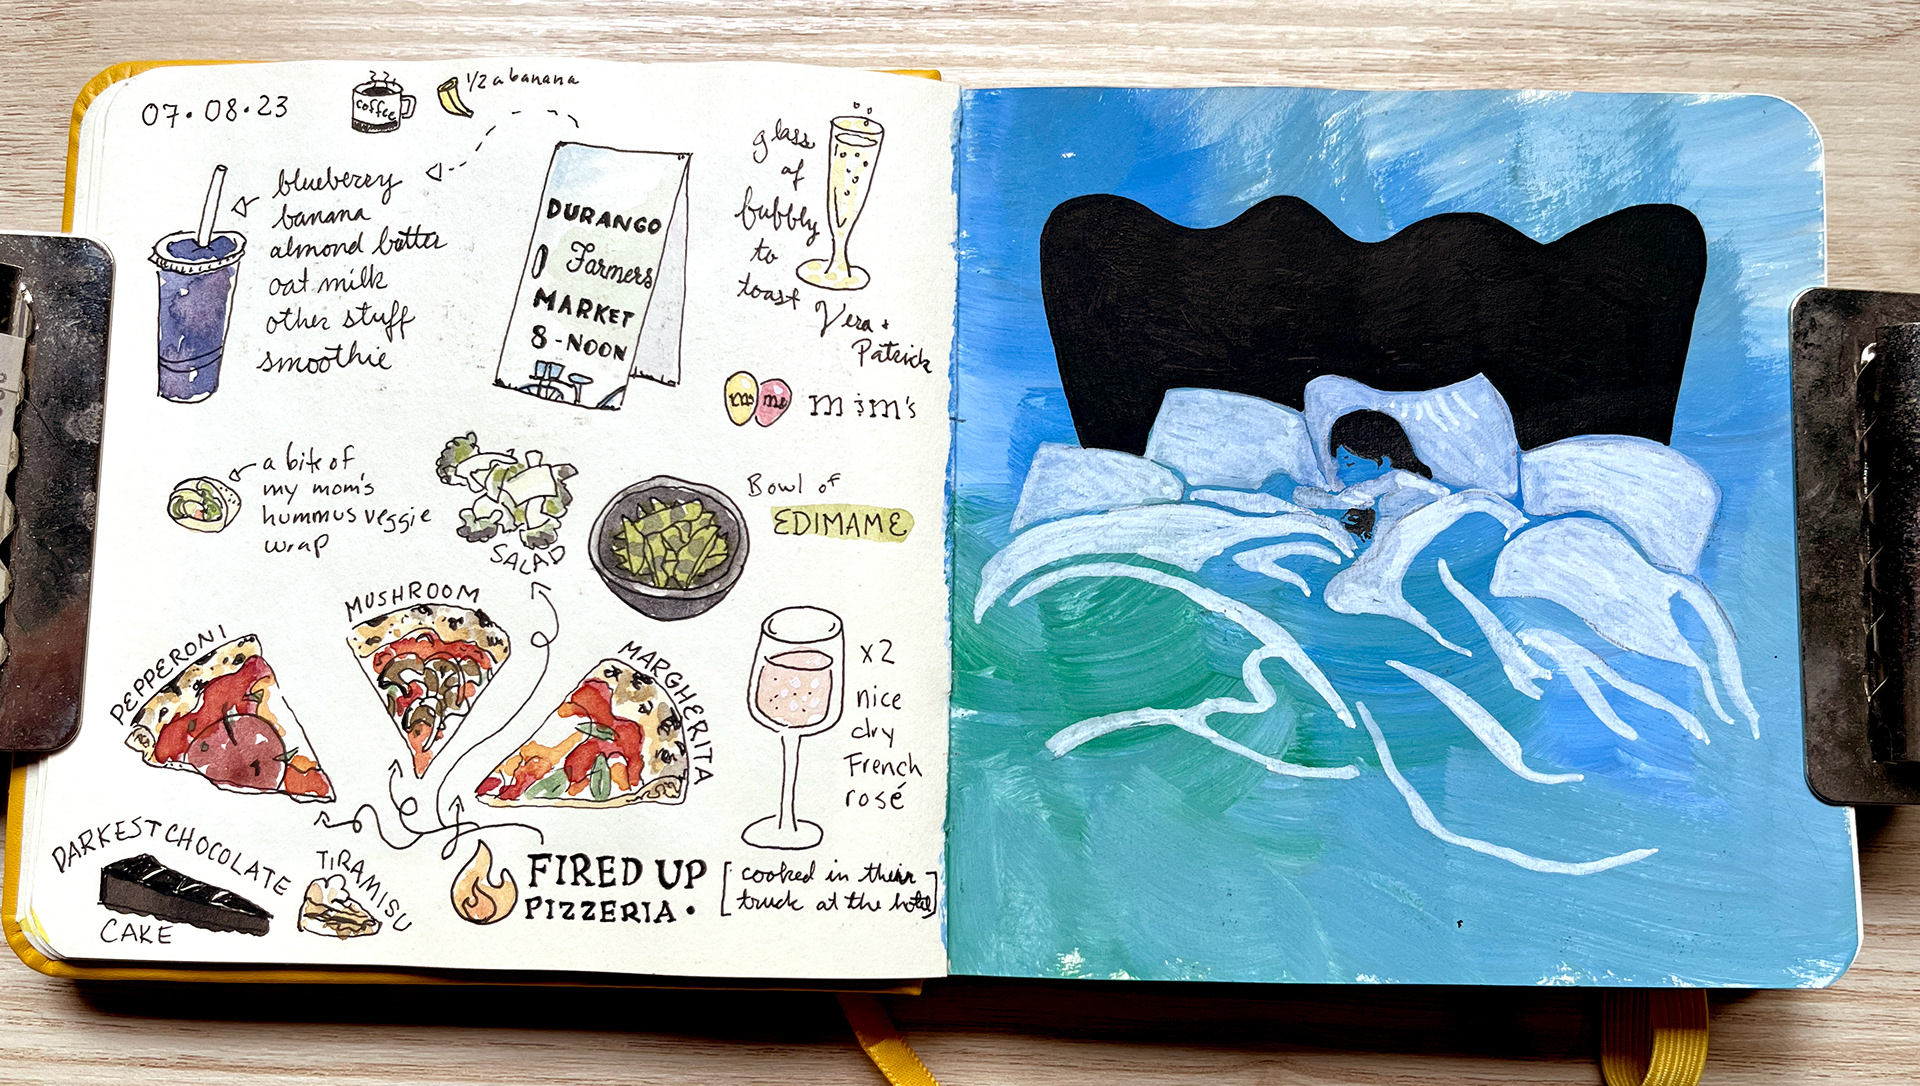 07.08.23
coffee
1/2 a banana
blueberry
banana
almond butter
oat milk
other stuff
smoothie
DURANGO
Farmers
MARKET
8-NOON
glass
of
bubbly
to
toast Vera +
Patrick
m
m
m & m's
a bite of
my mom's
hummus veggie
wrap
SALAD
Bowl of
EDIMAME
PEPPERONI
MUSHROOM
MARGHERITA
x2
nice
dry
French
rosé
DARKEST CHOCOLATE
CAKE
TIRAMISU
FIRED UP
PIZZERIA.
[cooked in their
truck at the hotel]